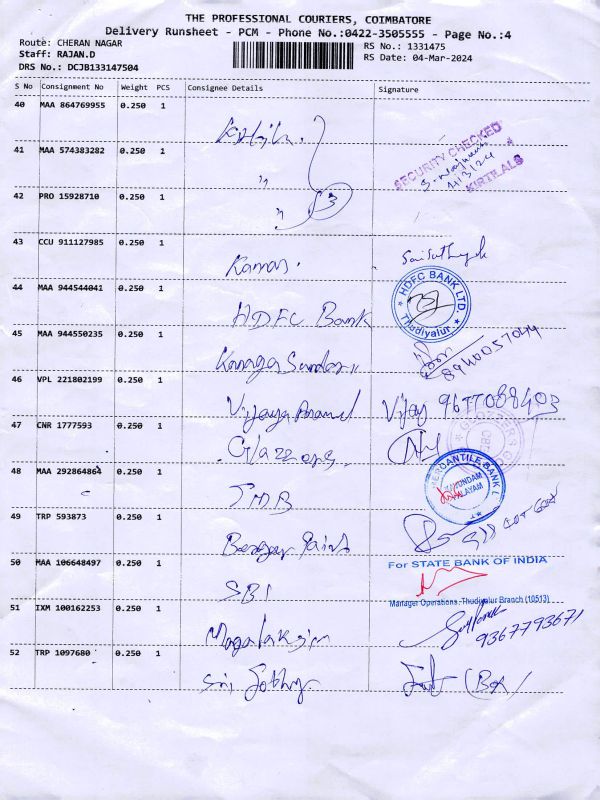 THE PROFESSIONAL COURIERS, COIMBATORE
Delivery Runsheet - PCM - Phone No.:0422-3505555 - Page No.:4
Route: CHERAN NAGAR
RS No.: 1331475
Staff: RAJAN.D
RS Date: 04-Mar-2024
DRS No.: DCJB133147504
S No Consignment No Weight PCS Consignee Details Signature
40 MAA 864769955 0.250 1
SECURITY CHECKED
4/3/24
KIRTILALS
41 MAA 574383282 0.250 1
"
42 PRO 15928710 0.250 1
" 3
43 CCU 911127985 0.250 1
Kannan.
44 MAA 944544041 0.250 1
HDFC Bank
HDFC BANK LTD.
Thudiyalur.
45 MAA 944550235 0.250 1
8940057044
46 VPL 221802199 0.250 1
Vijaya Anand Vijay 9677088403
47 CNR 1777593 0.250 1
48 MAA 292864864 0.250 1
TMB
MERCANTILE BANK L
49 TRP 593873 0.250 1
Berger Paints
50 MAA 106648497 0.250 1
SBI
For STATE BANK OF INDIA
Manager Operations, Thudiyalur Branch (10513)
51 IXM 100162253 0.250 1
9367793671
52 TRP 1097680 0.250 1
Sri